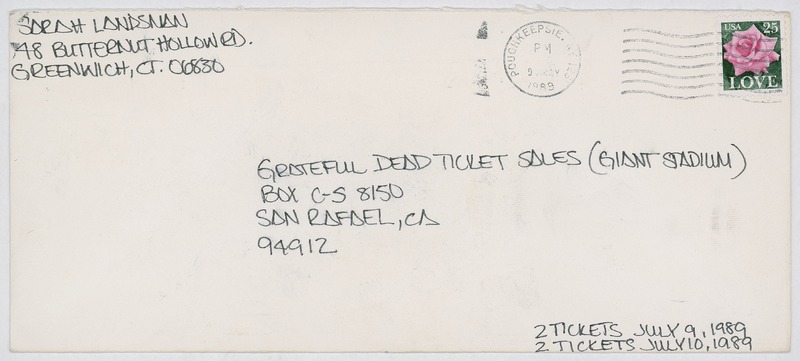 SARAH LANDSMAN
48 BUTTERNUT HOLLOW RD.
GREENWICH, CT. 06830
POUGHKEEPSIE, NY
PM
1989
USA 25
LOVE
GRATEFUL DEAD TICKET SALES (GIANT STADIUM)
BOX C-S 8150
SAN RAFAEL, CA
94912
2 TICKETS JULY 9, 1989
2 TICKETS JULY 10, 1989